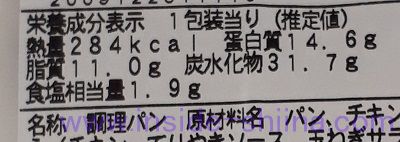 栄養成分表示 1包装当り (推定値)
熱量284kcal 蛋白質14.6g
脂質11.0g 炭水化物31.7g
食塩相当量1.9g
名称 調理パン 原材料名 パン、チキン